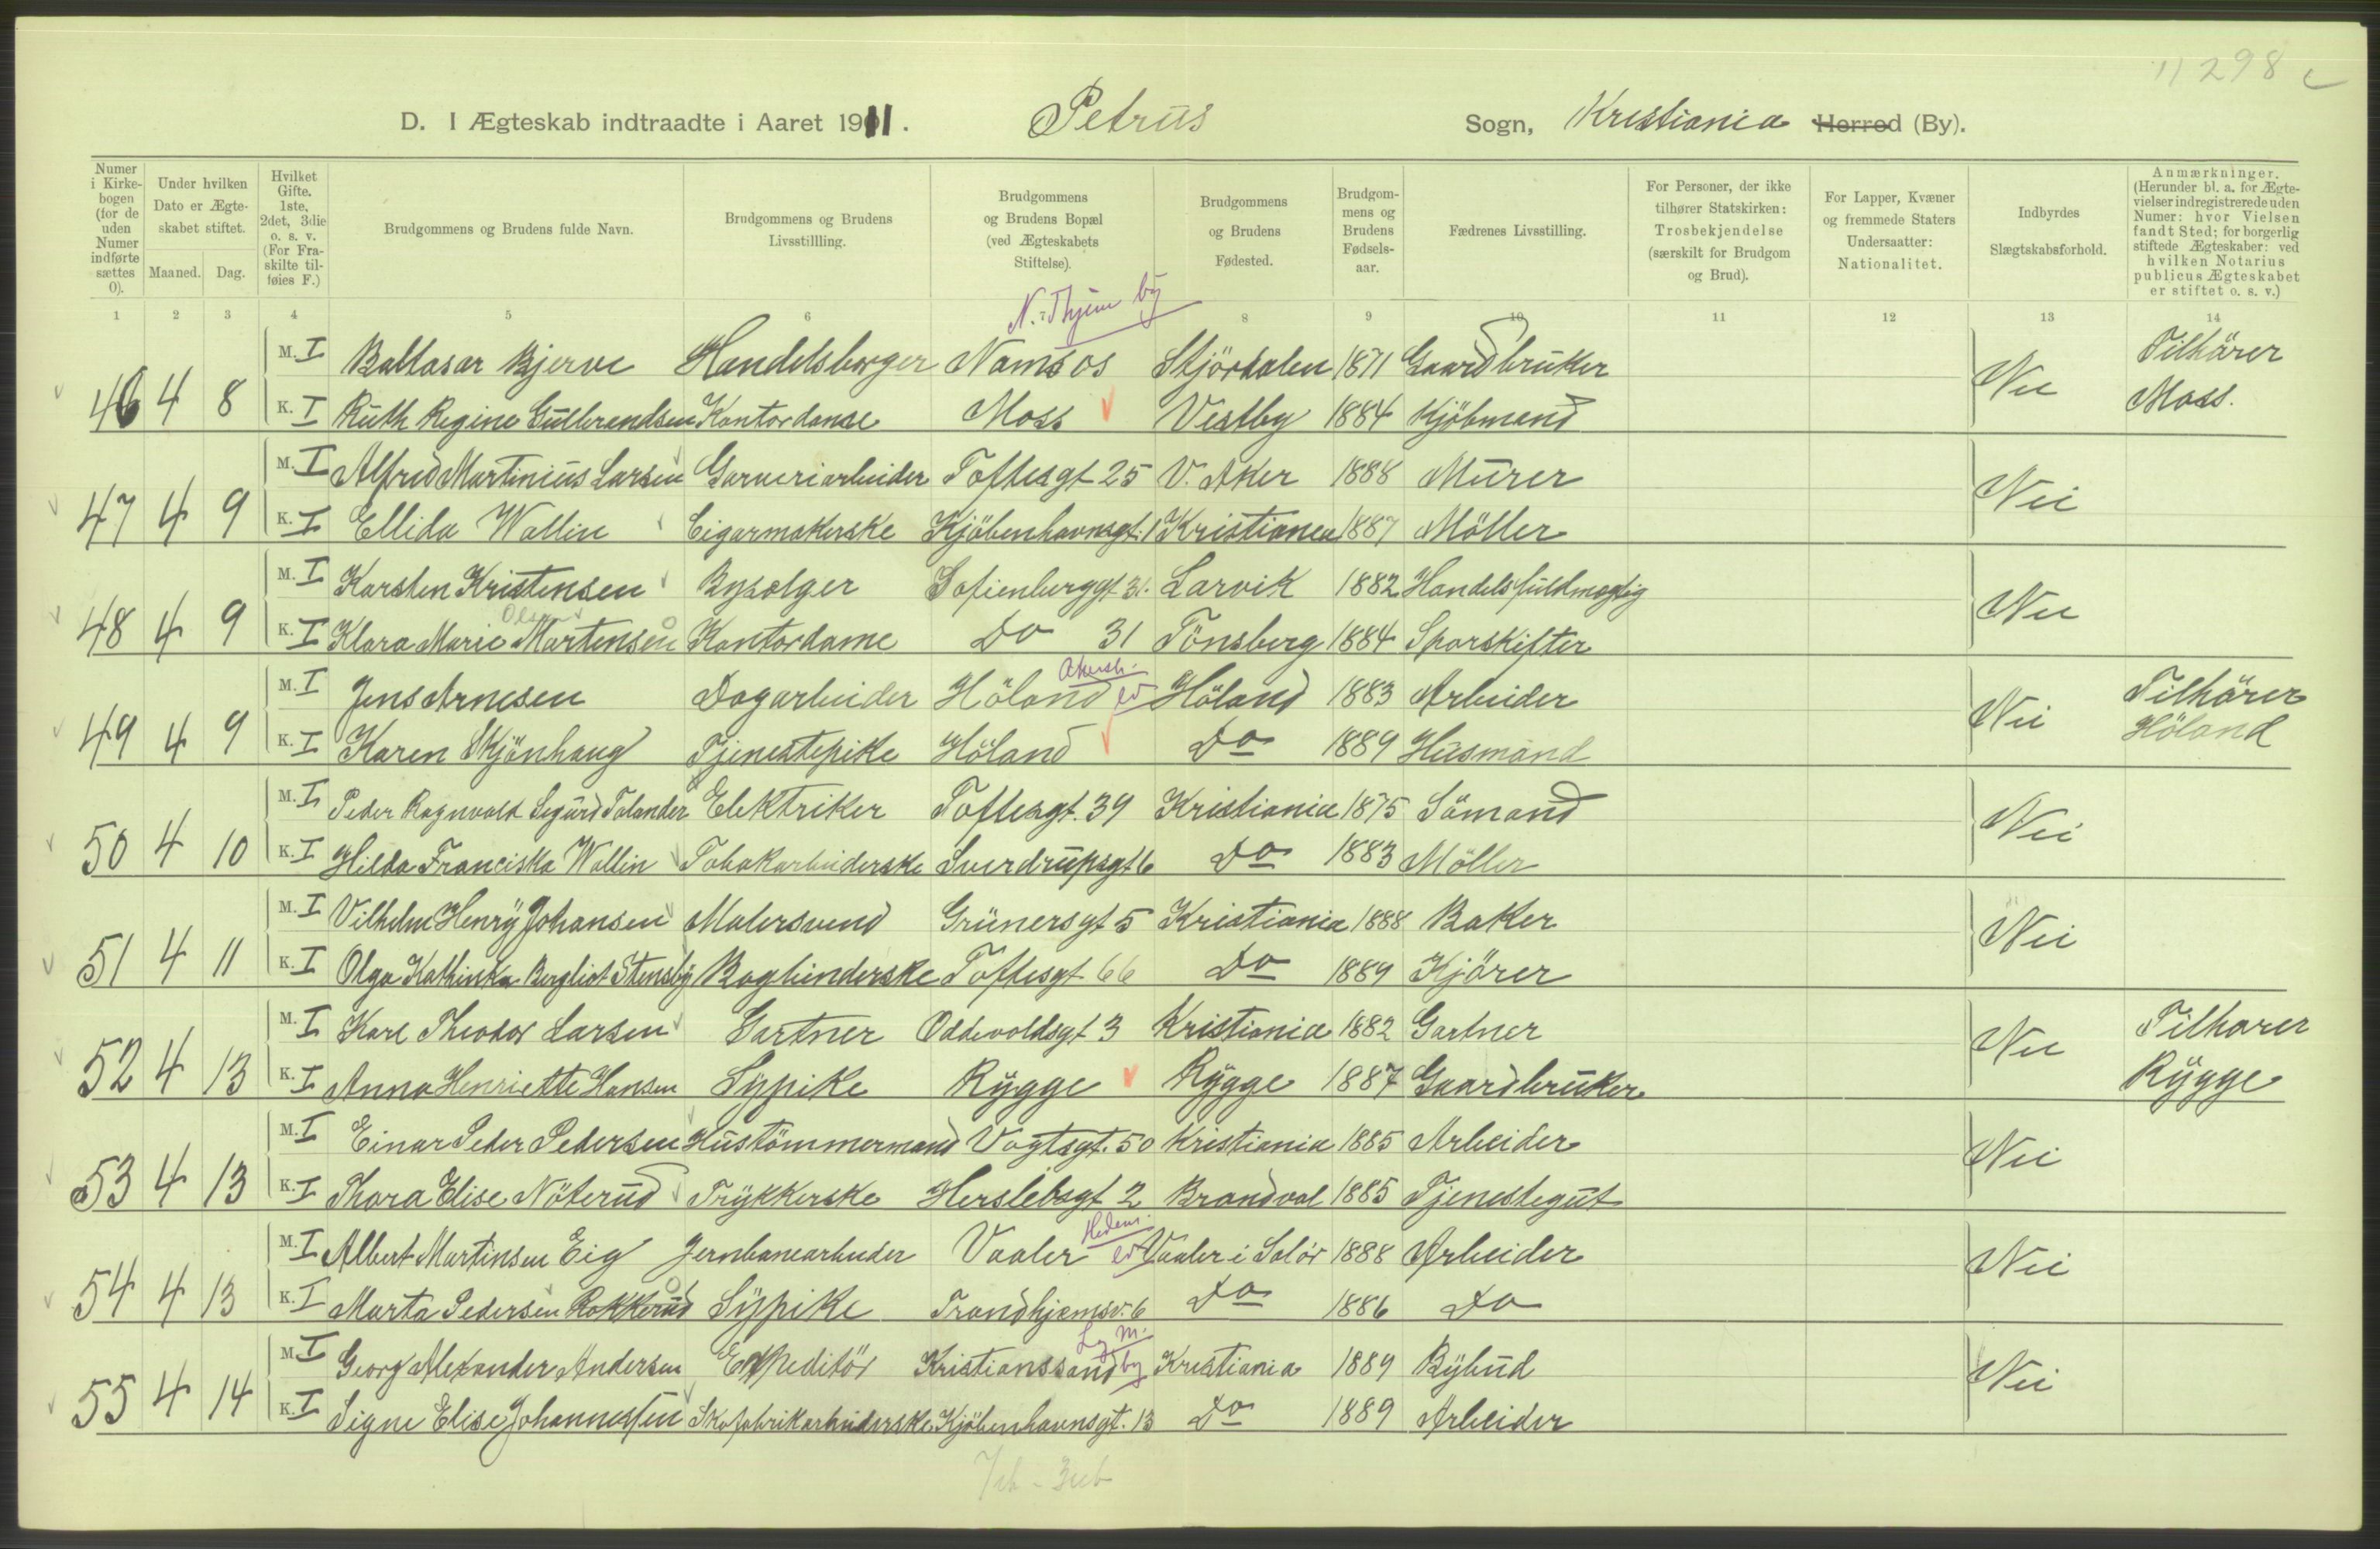 11298
D. I Ægteskab indtraadte i Aaret 1911. Petrus Sogn, Kristiania Herred (By).
Numer i Kirkebogen (for de uden Numer indførte sættes 0).
Under hvilken Dato er Ægteskabet stiftet.
Maaned. Dag.
Hvilket Gifte. 1ste, 2det, 3die o. s. v. (For Fraskilte tilføies F.)
Brudgommens og Brudens fulde Navn.
Brudgommens og Brudens Livsstillling.
Brudgommens og Brudens Bopæl (ved Ægteskabets Stiftelse).
Brudgommens og Brudens Fødested.
Brudgommens og Brudens Fødselsaar.
Fædrenes Livsstilling.
For Personer, der ikke tilhører Statskirken: Trosbekjendelse (særskilt for Brudgom og Brud).
For Lapper, Kvæner og fremmede Staters Undersaatter: Nationalitet.
Indbyrdes Slægtskabsforhold.
Anmærkninger. (Herunder bl. a. for Ægtevielser indregistrerede uden Numer: hvor Vielsen fandt Sted; for borgerlig stiftede Ægteskaber: ved hvilken Notarius publicus Ægteskabet er stiftet o. s. v.)
1 2 3 4 5 6 7 8 9 10 11 12 13 14
N.-Thjem by
M. I Baltasar Bjerve Handelsborger Namsos Stjördalen 1871 Gaardbruker Tilhörer
46 4 8 K. I Ruth Regine Gulbrandsen Kontordame Moss Vestby 1884 Kjöbmand Nei Moss.
M. I Alfred Martinius Larsen Garveriarbeider Toftesgt 25 V. Aker 1888 Murer
47 4 9 K. I Ellida Wallin Cigarmakerske Kjöbenhavnsgt. 1 Kristiania 1887 Möller Nei
M. I Karsten Kristensen Bysælger Sofienberggt 31. Larvik 1882 Handelsfuldmægtig
Olsen
48 4 9 K. I Klara Marie Martensen Kontordame Do 31 Tönsberg 1884 Sporskifter Nei
Akersh.
M. I Jens Arnesen Dagarbeider Höland Höland 1883 Arbeider Tilhörer
49 4 9 K. I Karen Skjönhaug Tjenestepike Höland Do 1889 Husmand Nei Höland
M. I Peder Ragnvald Sigurd Tolander Elektriker Toftesgt. 39 Kristiania 1875 Sömand
50 4 10 K. I Hilda Franciska Wallin Tobakarbeiderske Sverdrupsgt 6 Do 1883 Möller Nei
M. I Vilhelm Henry Johansen Malersvend Grünersgt 5 Kristiania 1888 Baker
51 4 11 K. I Olga Kathinka Bergliot Stensby Bogbinderske Toftesgt 66 Do 1889 Kjörer Nei
M. I Karl Theodor Larsen Gartner Oddevoldsgt 3 Kristiania 1882 Gartner Tilhører
52 4 13 K. I Anna Henriette Hansen Sypike Rygge Rygge 1887 Gaardbruker Nei Rygge
M. I Einar Peder Pedersen Hustömmermand Vogtsgt. 50 Kristiania 1885 Arbeider
53 4 13 K. I Thora Elise Nöterud Trykkerske Herslebsgt 2 Brandval 1885 Tjenestegut Nei
Hedm.
M. I Albert Martinsen Eig Jernbanearbeider Vaaler Vaaler i Solör 1888 Arbeider
54 4 13 K. I Marta Pedersen Rokkerud Sypike Trondhjemsv. 6 Do 1886 Do Nei
L. M. by
M. I Georg Alexander Andersen Expeditör Kristianssand Kristiania 1889 Bybud
55 4 14 K. I Signe Elise Johannessen Skofabrikarbeiderske Kjöbenhavnsgt. 13 Do 1889 Arbeider Nei